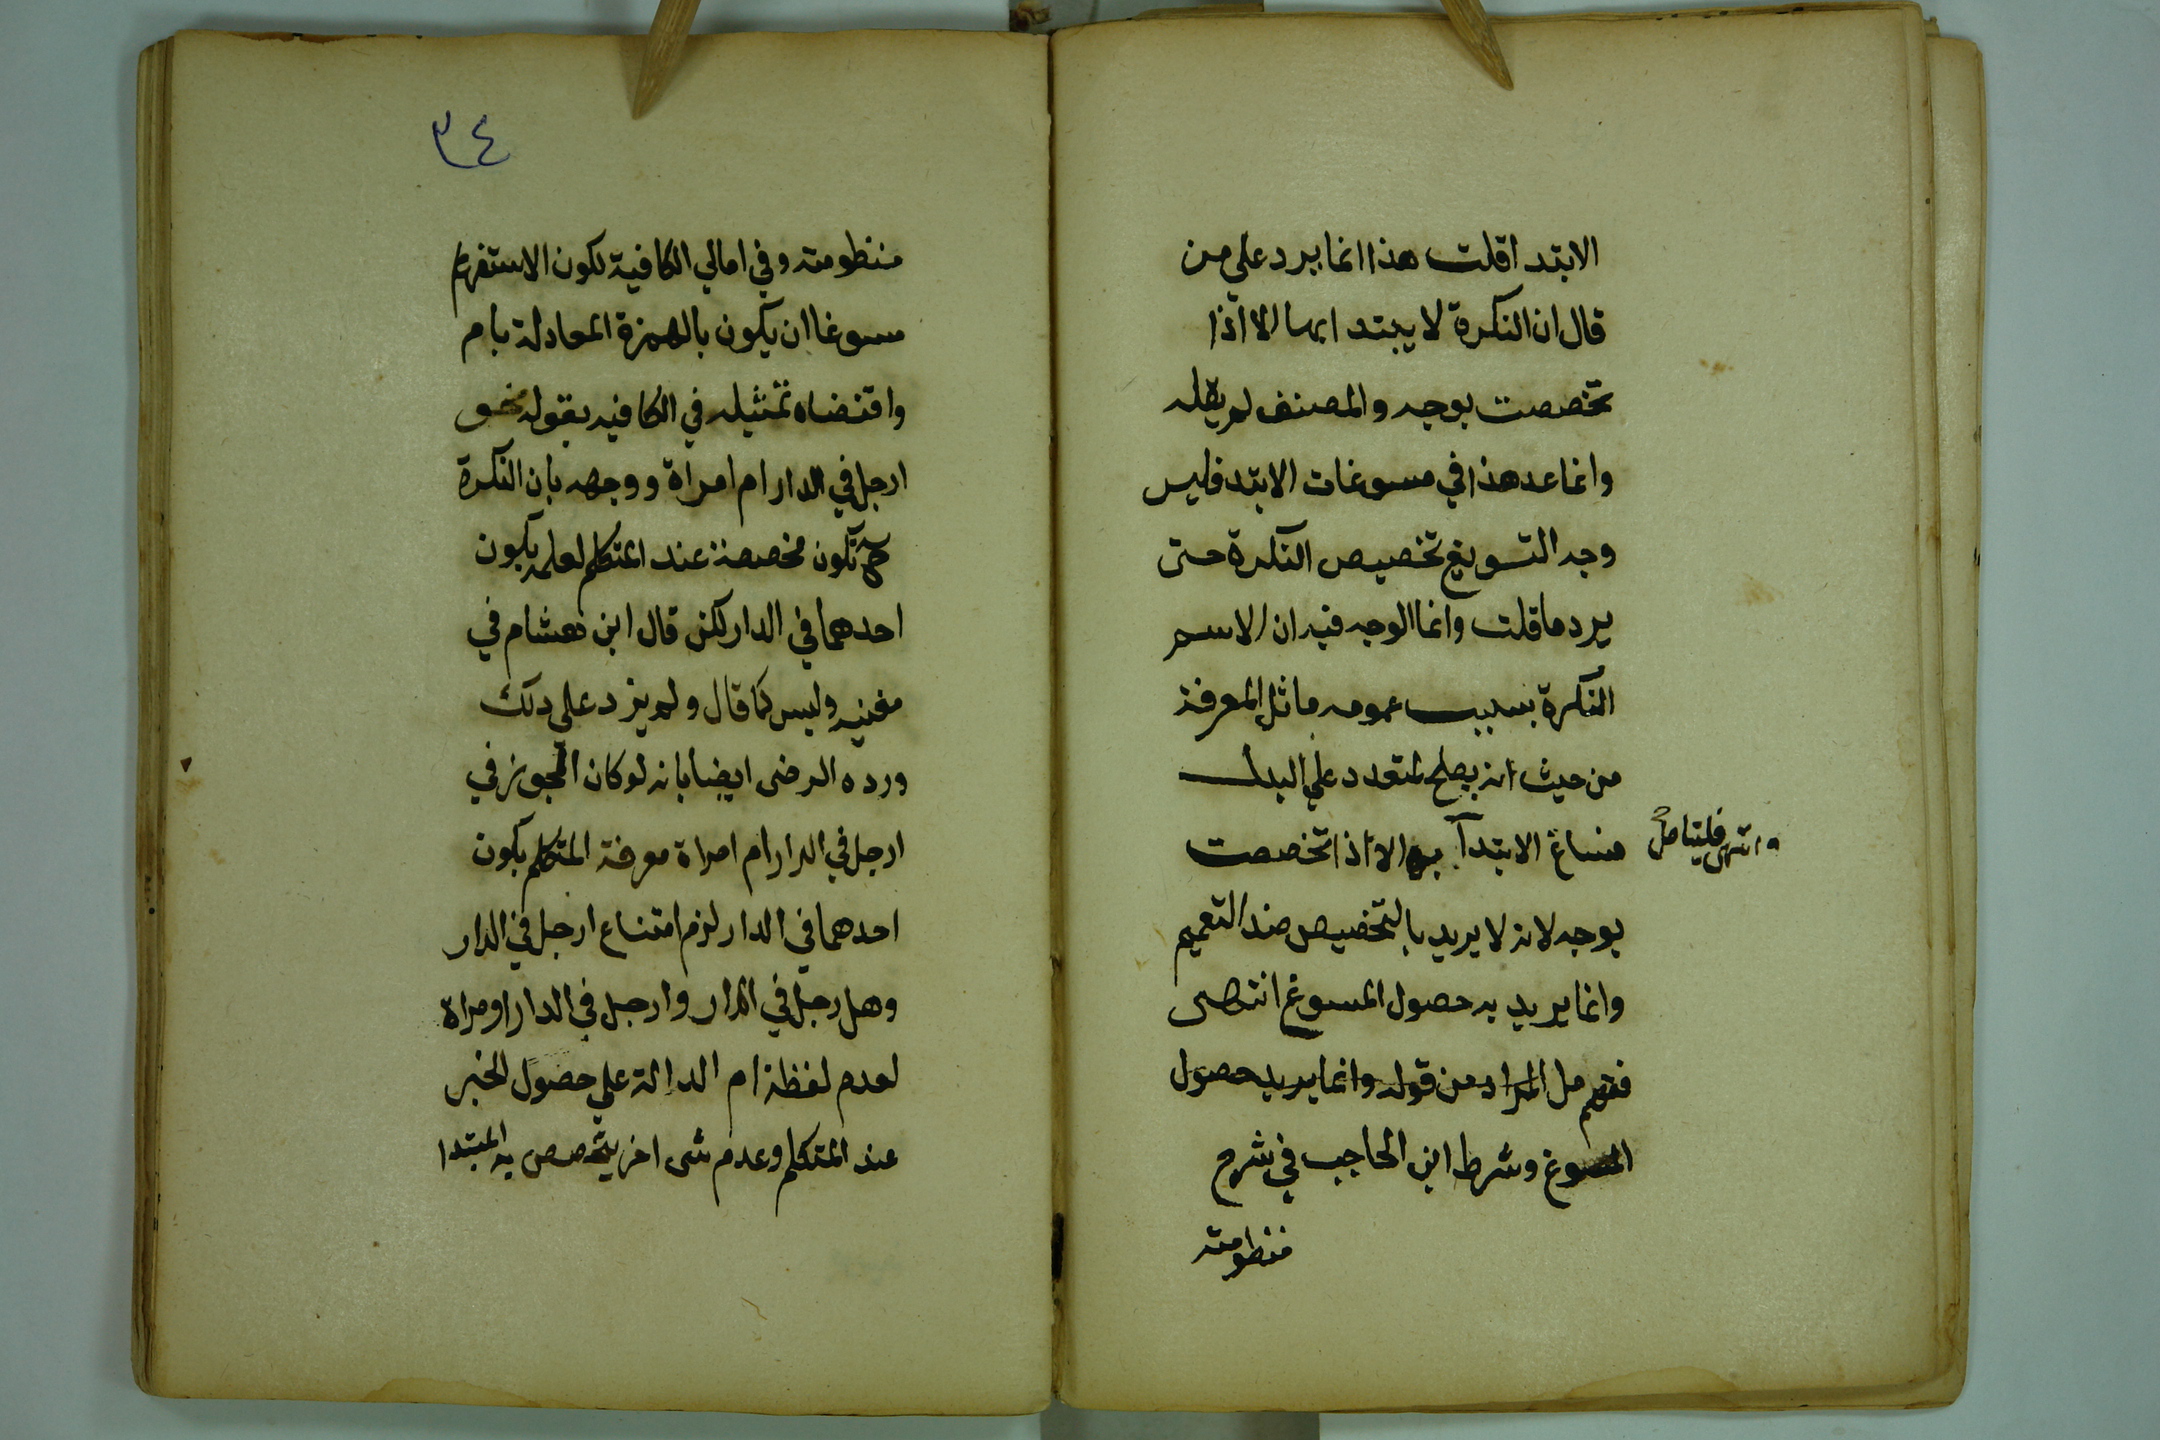 الابتدا قلت هذا انما يرد علي من
قال ان النكرة لا يبتدا بها الا اذا
تخصصت بوجه والمصنف لم يقله
وانما عد هذا في مسوغات الابتد فليس
وجه التسويغ تخصيص النكرة حتى
يرد ما قلت وانما الوجه فيه ان الاسم
النكرة بسبب عمومه ماثل المعرفة
من حيث انه يصلح لمتعدد علي البدل
فساغ الابتدآ به الا اذا تخصصت
وانتهى فليتامل
بوجه لانه لا يريد بالتخصيص ضد التعميم
وانما يريد به حصول المسوغ انتهى
المراد من قوله وانما يريد حصول
المسوغ وشرط ابن الحاجب في شرح
منظومته
٣٤
منظومته وفي امالي الكافية لكون الاستفهام
سوغا ان يكون بالهمزة المعادلة بام
واقتضاه تمثيله في الكافيه بقوله نحو
ارجل في الدار ام امراة ووجهه بان النكرة
ح تكون مخصصة عند المتكلم لعلمه بكون
احدهما في الدار لكن قال ابن هشام في
مغنيه وليس كما قال ولم يزد علي ذلك
ورده الرضى ايضا بانه لو كان المجوز في
ارجل في الدار ام امراة معرفة المتكلم بكون
احدهما في الدار لزم امتناع ارجل في الدار
وهل رجل في الدار وارجل في الدار او مراة
لعدم لفظة ام الدالة علي حصول الخبر
عند المتكلم وعدم شى اخر يتخصص به المبتدا